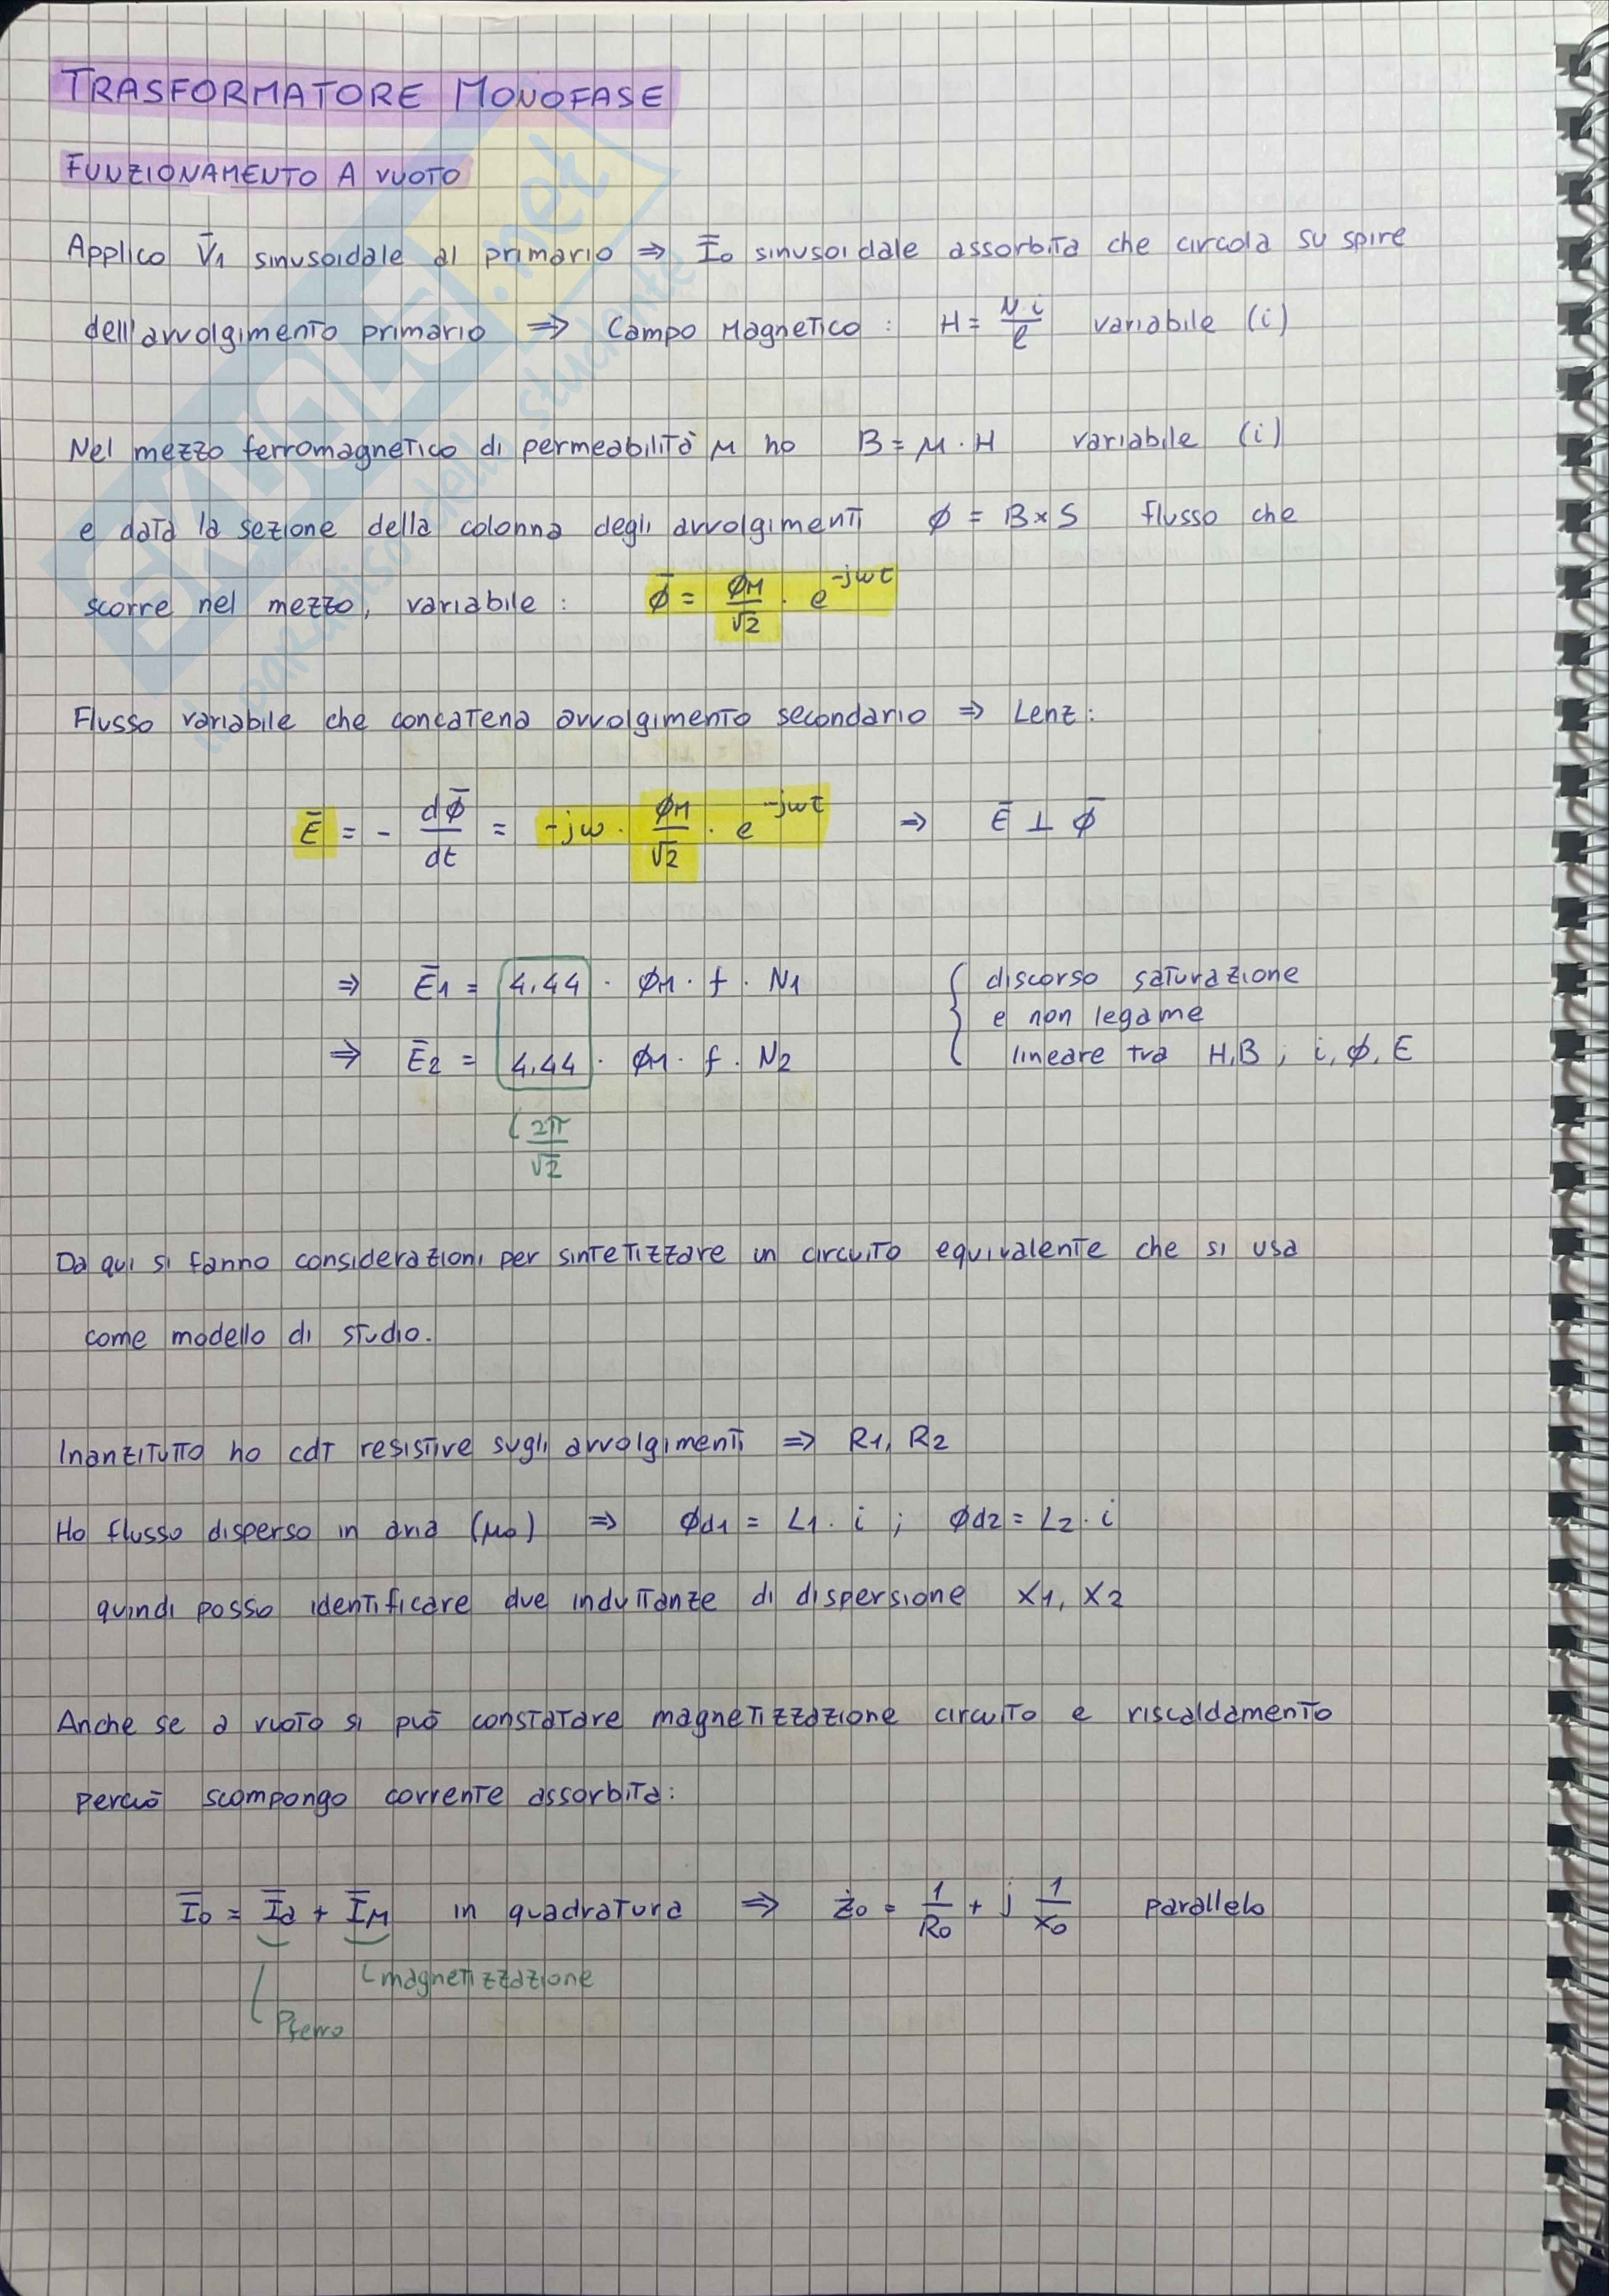 TRASFORMATORE MONOFASE
FUNZIONAMENTO A VUOTO
Applico V̄1 sinusoidale al primario ⇒ Ī0 sinusoidale assorbita che circola su spire
dell'avvolgimento primario ⇒ Campo Magnetico : H = N·i/ℓ variabile (i)
Nel mezzo ferromagnetico di permeabilità μ ho B = μ · H variabile (i)
e data la sezione della colonna degli avvolgimenti ϕ = B×S flusso che
scorre nel mezzo, variabile : ϕ̄ = ϕM/√2 · e^-jωt
Flusso variabile che concatena avvolgimento secondario ⇒ Lenz :
Ē = - dϕ̄/dt = -jω · ϕM/√2 · e^-jωt ⇒ Ē ⊥ ϕ̄
⇒ Ē1 = 4,44 · ϕM · f · N1 { discorso saturazione
e non legame
⇒ Ē2 = 4,44 · ϕM · f · N2 lineare tra H,B ; i, ϕ, E
2π/√2
Da qui si fanno considerazioni per sintetizzare un circuito equivalente che si usa
come modello di studio.
Inanzitutto ho cdt resistive sugli avvolgimenti ⇒ R1, R2
Ho flusso disperso in aria (μ0) ⇒ ϕd1 = L1 · i ; ϕd2 = L2 · i
quindi posso identificare due induttanze di dispersione X1, X2
Anche se a vuoto si può constatare magnetizzazione circuito e riscaldamento
perciò scompongo corrente assorbita :
Ī0 = Īa + Īμ in quadratura ⇒ Ż0 = 1/R0 + j 1/X0 parallelo
magnetizzazione
Pferro
SKUOLA.net
il paradiso dello studente